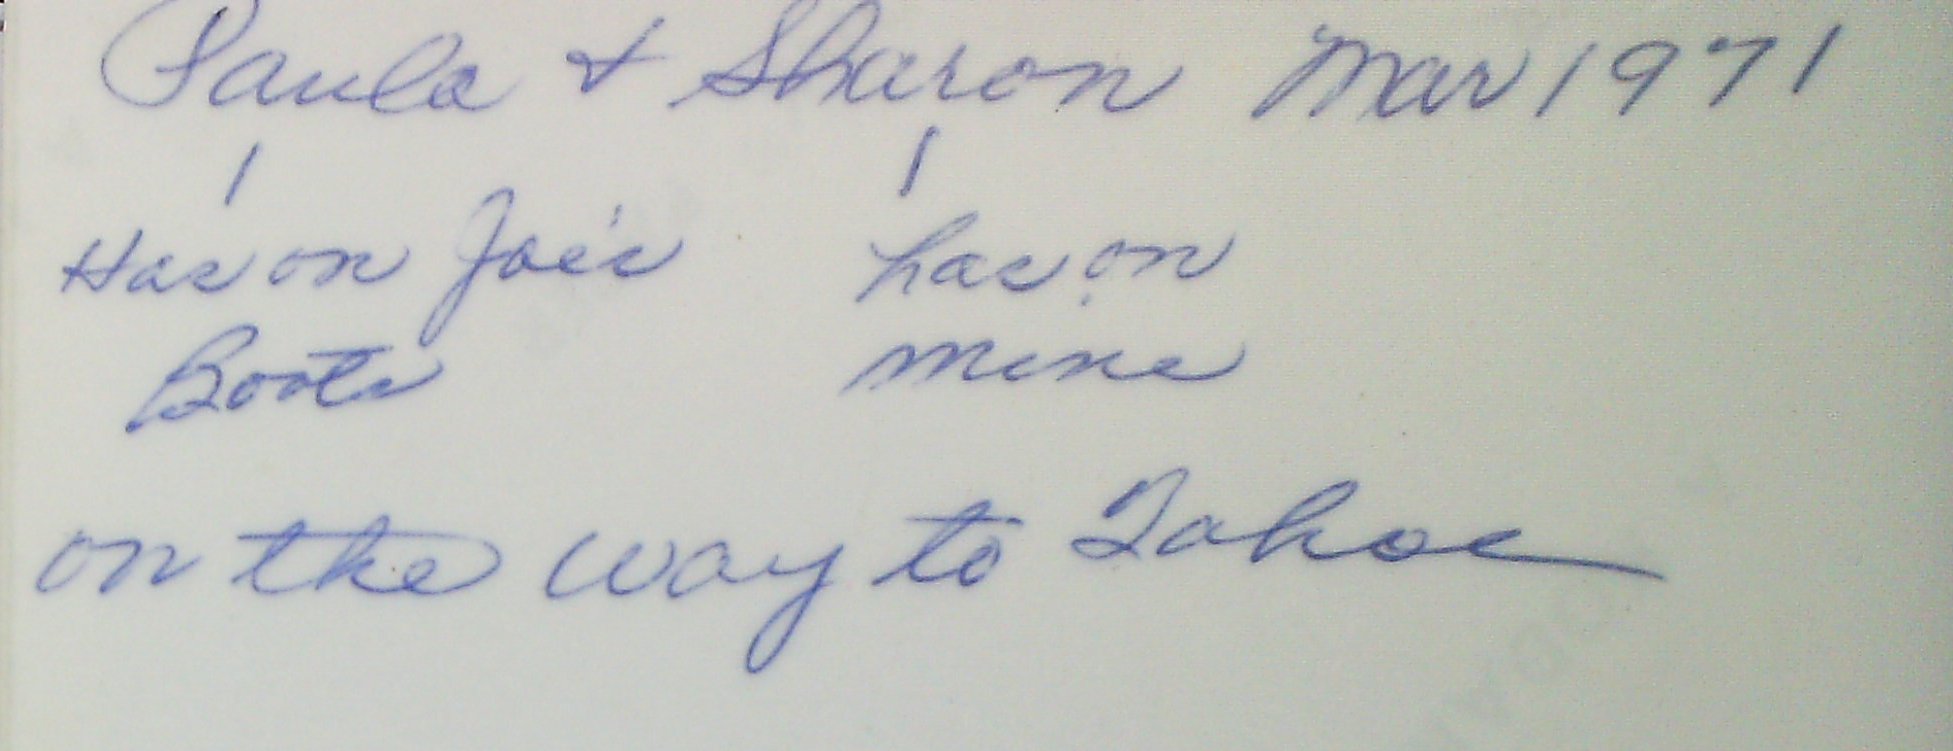 Paula & Sharon Mar 1971
Has on Joe's has on
Boots mine
on the way to Tahoe